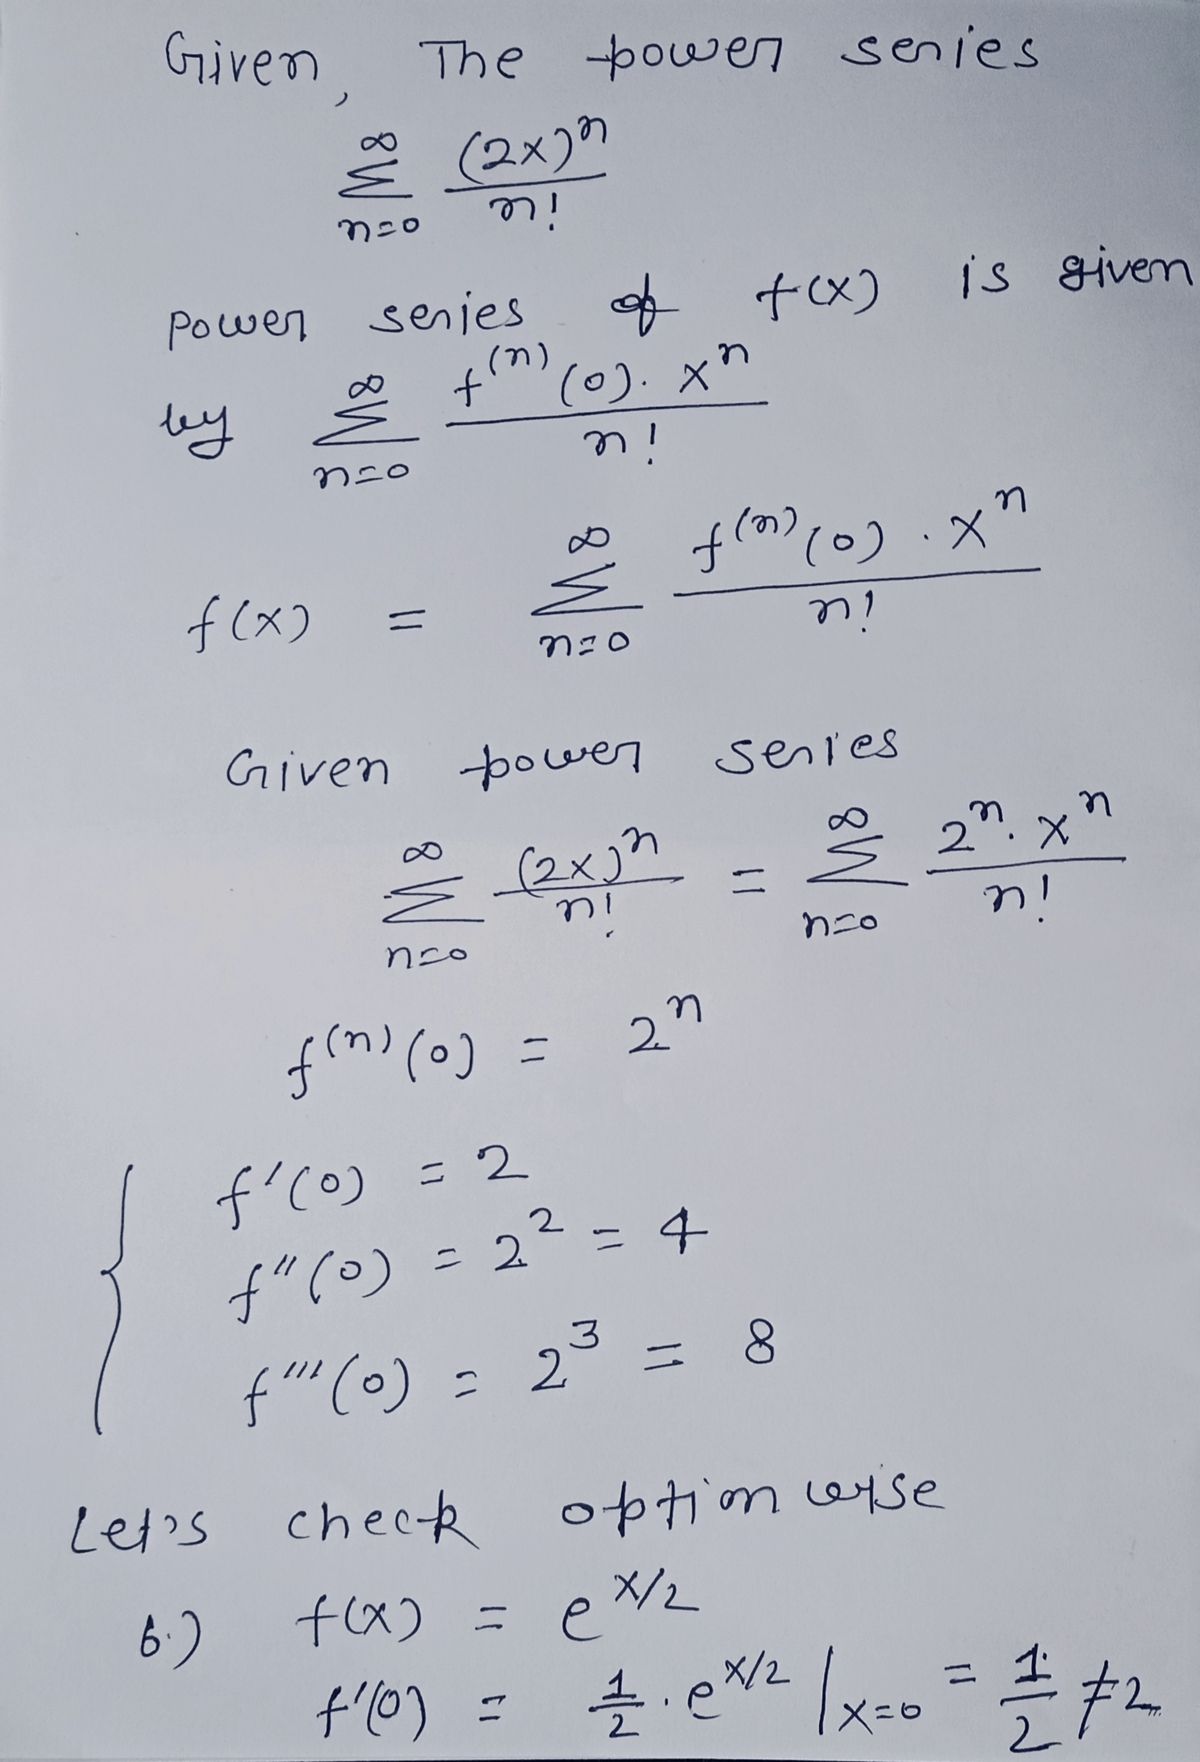 Given, The power series
∞ Σ n=0 (2x)^n / n!
power series of f(x) is given
by ∞ Σ n=0 f^(n)(0). x^n / n!
f(x) = ∞ Σ n=0 f^(n)(0) . x^n / n!
Given power series
∞ Σ n=0 (2x)^n / n! = ∞ Σ n=0 2^n. x^n / n!
f^(n)(0) = 2^n
{ f'(0) = 2
f''(0) = 2^2 = 4
f'''(0) = 2^3 = 8
Let's check option wise
b.) f(x) = e^x/2
f'(0) = 1/2 . e^x/2 |x=0 = 1/2 ≠ 2